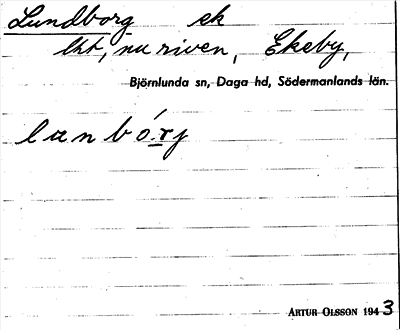 Lundborg ek
lht, nu riven, Ekeby,
Björnlunda sn, Daga hd, Södermanlands län.
lanbó.rj
ARTUR OLSSON 1943